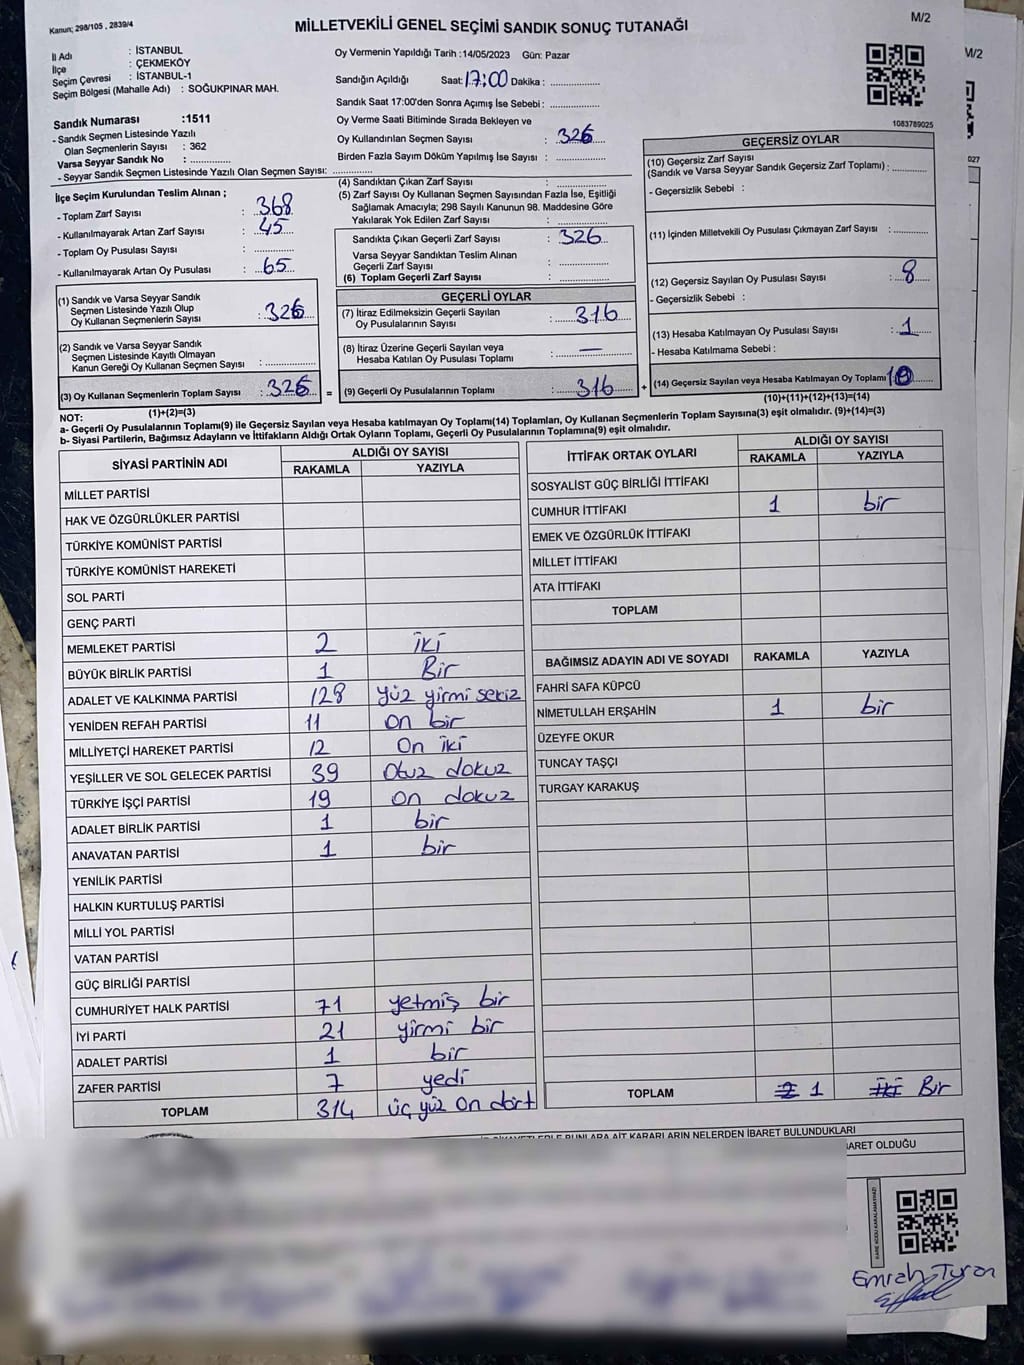 Kanun; 298/105 , 2839/4
MİLLETVEKİLİ GENEL SEÇİMİ SANDIK SONUÇ TUTANAĞI
M/2
M/2
İl Adı : İSTANBUL
İlçe : ÇEKMEKÖY
Seçim Çevresi : İSTANBUL-1
Seçim Bölgesi (Mahalle Adı) : SOĞUKPINAR MAH.
Oy Vermenin Yapıldığı Tarih :14/05/2023 Gün: Pazar
Sandığın Açıldığı Saat: 17:00 Dakika : ..................
Sandık Saat 17:00'den Sonra Açımış İse Sebebi : ..................
Oy Verme Saati Bitiminde Sırada Bekleyen ve
Oy Kullandırılan Seçmen Sayısı : 326
Birden Fazla Sayım Döküm Yapılmış İse Sayısı : ..................
1083789025
027
Sandık Numarası :1511
- Sandık Seçmen Listesinde Yazılı
Olan Seçmenlerin Sayısı : 362
Varsa Seyyar Sandık No : ..............
- Seyyar Sandık Seçmen Listesinde Yazılı Olan Seçmen Sayısı: ..................
İlçe Seçim Kurulundan Teslim Alınan ;
- Toplam Zarf Sayısı : 368
- Kullanılmayarak Artan Zarf Sayısı : 45
- Toplam Oy Pusulası Sayısı : ..............
- Kullanılmayarak Artan Oy Pusulası : 65
(1) Sandık ve Varsa Seyyar Sandık
Seçmen Listesinde Yazılı Olup
Oy Kullanan Seçmenlerin Sayısı : 326
(2) Sandık ve Varsa Seyyar Sandık
Seçmen Listesinde Kayıtlı Olmayan
Kanun Gereği Oy Kullanan Seçmen Sayısı : ..............
(3) Oy Kullanan Seçmenlerin Toplam Sayısı : 326
(1)+(2)=(3)
(4) Sandıktan Çıkan Zarf Sayısı : ..............
(5) Zarf Sayısı Oy Kullanan Seçmen Sayısından Fazla İse, Eşitliği
Sağlamak Amacıyla; 298 Sayılı Kanunun 98. Maddesine Göre
Yakılarak Yok Edilen Zarf Sayısı : ..............
Sandıkta Çıkan Geçerli Zarf Sayısı : 326
Varsa Seyyar Sandıktan Teslim Alınan
Geçerli Zarf Sayısı : ..............
(6) Toplam Geçerli Zarf Sayısı : ..............
GEÇERLİ OYLAR
(7) İtiraz Edilmeksizin Geçerli Sayılan
Oy Pusulalarının Sayısı : 316
(8) İtiraz Üzerine Geçerli Sayılan veya
Hesaba Katılan Oy Pusulası Toplamı : —
= (9) Geçerli Oy Pusulalarının Toplamı : 316
GEÇERSİZ OYLAR
(10) Geçersiz Zarf Sayısı
(Sandık ve Varsa Seyyar Sandık Geçersiz Zarf Toplamı) : ..............
- Geçersizlik Sebebi :
(11) İçinden Milletvekili Oy Pusulası Çıkmayan Zarf Sayısı : ..............
(12) Geçersiz Sayılan Oy Pusulası Sayısı : 8
- Geçersizlik Sebebi :
(13) Hesaba Katılmayan Oy Pusulası Sayısı : 1
- Hesaba Katılmama Sebebi :
+ (14) Geçersiz Sayılan veya Hesaba Katılmayan Oy Toplamı : 10
(10)+(11)+(12)+(13)=(14)
NOT:
a- Geçerli Oy Pusulaları Toplamı(9) ile Geçersiz Sayılan veya Hesaba katılmayan Oy Toplamı(14) Toplamları, Oy Kullanan Seçmenlerin Toplam Sayısına(3) eşit olmalıdır. (9)+(14)=(3)
b- Siyasi Partilerin, Bağımsız Adayların ve İttifakların Aldığı Ortak Oyların Toplamı, Geçerli Oy Pusulalarının Toplamına(9) eşit olmalıdır.
SİYASİ PARTİNİN ADI ALDIĞI OY SAYISI
RAKAMLA YAZIYLA
MİLLET PARTİSİ
HAK VE ÖZGÜRLÜKLER PARTİSİ
TÜRKİYE KOMÜNİST PARTİSİ
TÜRKİYE KOMÜNİST HAREKETİ
SOL PARTİ
GENÇ PARTİ
MEMLEKET PARTİSİ 2 iki
BÜYÜK BİRLİK PARTİSİ 1 Bir
ADALET VE KALKINMA PARTİSİ 128 yüz yirmi sekiz
YENİDEN REFAH PARTİSİ 11 on bir
MİLLİYETÇİ HAREKET PARTİSİ 12 On iki
YEŞİLLER VE SOL GELECEK PARTİSİ 39 otuz dokuz
TÜRKİYE İŞÇİ PARTİSİ 19 on dokuz
ADALET BİRLİK PARTİSİ 1 bir
ANAVATAN PARTİSİ 1 bir
YENİLİK PARTİSİ
HALKIN KURTULUŞ PARTİSİ
MİLLİ YOL PARTİSİ
VATAN PARTİSİ
GÜÇ BİRLİĞİ PARTİSİ
CUMHURİYET HALK PARTİSİ 71 yetmiş bir
İYİ PARTİ 21 yirmi bir
ADALET PARTİSİ 1 bir
ZAFER PARTİSİ 7 yedi
TOPLAM 314 üç yüz on dört
İTTİFAK ORTAK OYLARI ALDIĞI OY SAYISI
RAKAMLA YAZIYLA
SOSYALİST GÜÇ BİRLİĞİ İTTİFAKI
CUMHUR İTTİFAKI 1 bir
EMEK VE ÖZGÜRLÜK İTTİFAKI
MİLLET İTTİFAKI
ATA İTTİFAKI
TOPLAM
BAĞIMSIZ ADAYIN ADI VE SOYADI RAKAMLA YAZIYLA
FAHRİ SAFA KÜPCÜ
NİMETULLAH ERŞAHİN 1 bir
ÜZEYFE OKUR
TUNCAY TAŞÇI
TURGAY KARAKUŞ
TOPLAM 2 1 iki Bir
BUNLARA AİT KARARLARIN NELERDEN İBARET BULUNDUKLARI
İBARET OLDUĞU
KARE KODU KARALAMAYINIZ!
Emrah Turan